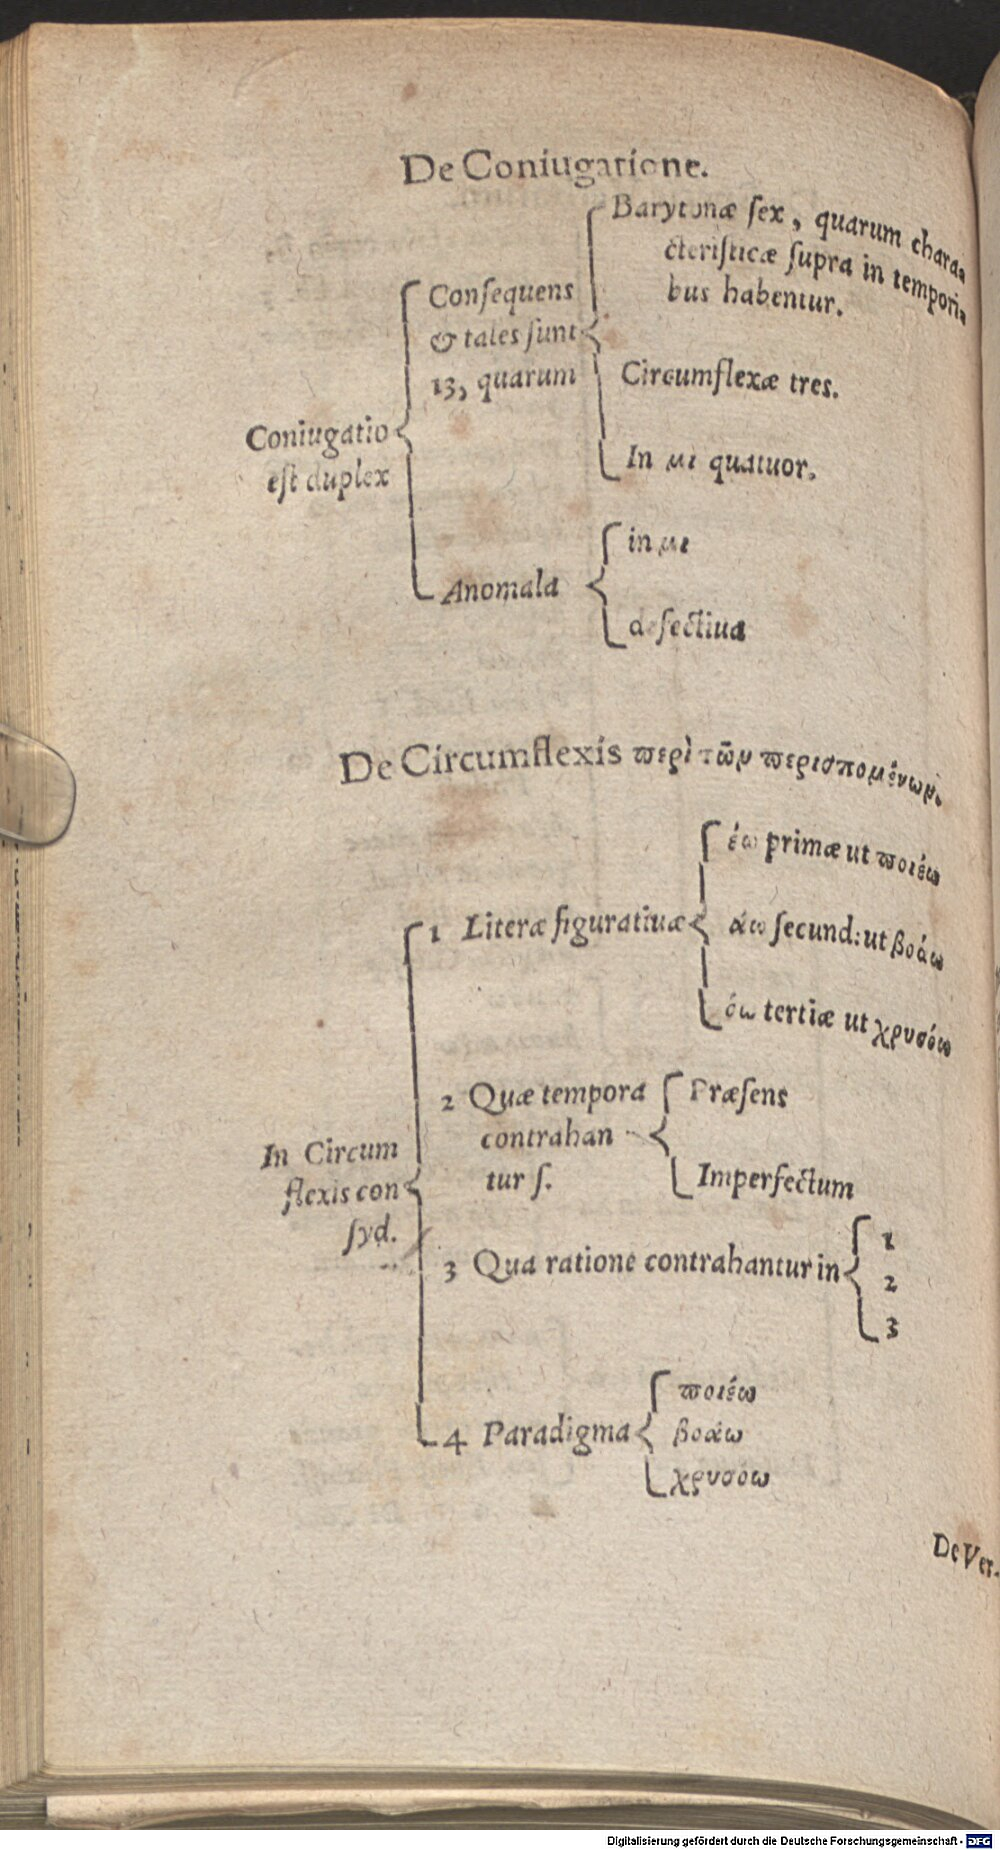 De Coniugatione.
Barytonæ ſex, quarum chara-
cteriſticæ ſupra in tempori-
bus habentur.
Conſequens
& tales ſunt
13, quarum
Circumflexæ tres.
Coniugatio
eſt duplex
In μι quatuor.
in μι
Anomala
defectiua
De Circumflexis περὶ τῶν περισπομένων.
έω primæ ut ποιέω
1 Literæ figuratiuæ
άω ſecund: ut βοάω
όω tertiæ ut χρυσόω
2 Quæ tempora
contrahan
tur ſ.
Præſens
Imperfectum
In Circum
flexis con
ſyd.
3 Qua ratione contrahantur in
1
2
3
4 Paradigma
ποιέω
βοάω
χρυσόω
De Ver-
Digitalisierung gefördert durch die Deutsche Forschungsgemeinschaft - DFG